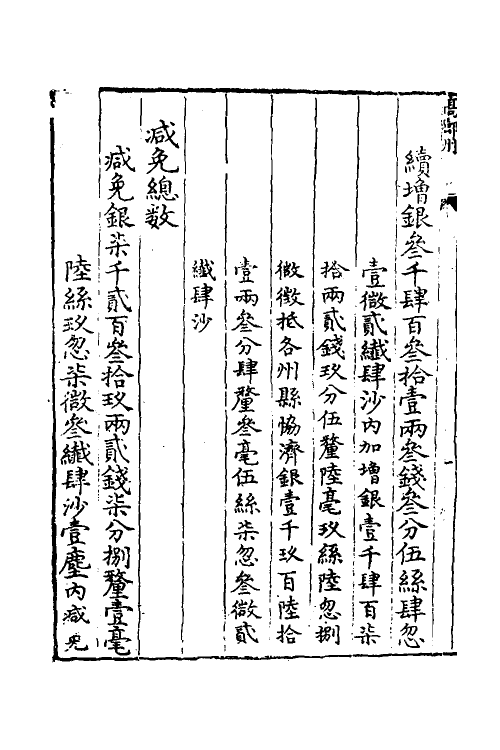 續增銀叄千肆百叄拾壹兩叄錢叄分伍絲肆忽
壹微貳纎肆沙內加增銀壹千肆百柒
拾兩貳錢玖分伍釐陸毫玖絲陸忽捌
微徴抵各州縣恊濟銀壹千玖百陸拾
壹兩叄分肆釐叄毫伍絲柒忽叄微貳
纎肆沙
減免總数
減免銀柒千貳百叄拾玖兩貳錢柒分捌釐壹毫
陸絲玖忽柒微叄纎肆沙壹塵內減免